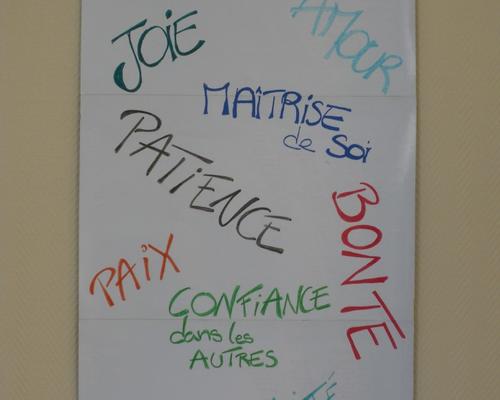 JOIE
AMOUR
MAÎTRISE
de SOI
PATIENCE
BONTE
PAIX
CONFIANCE
dans les
AUTRES